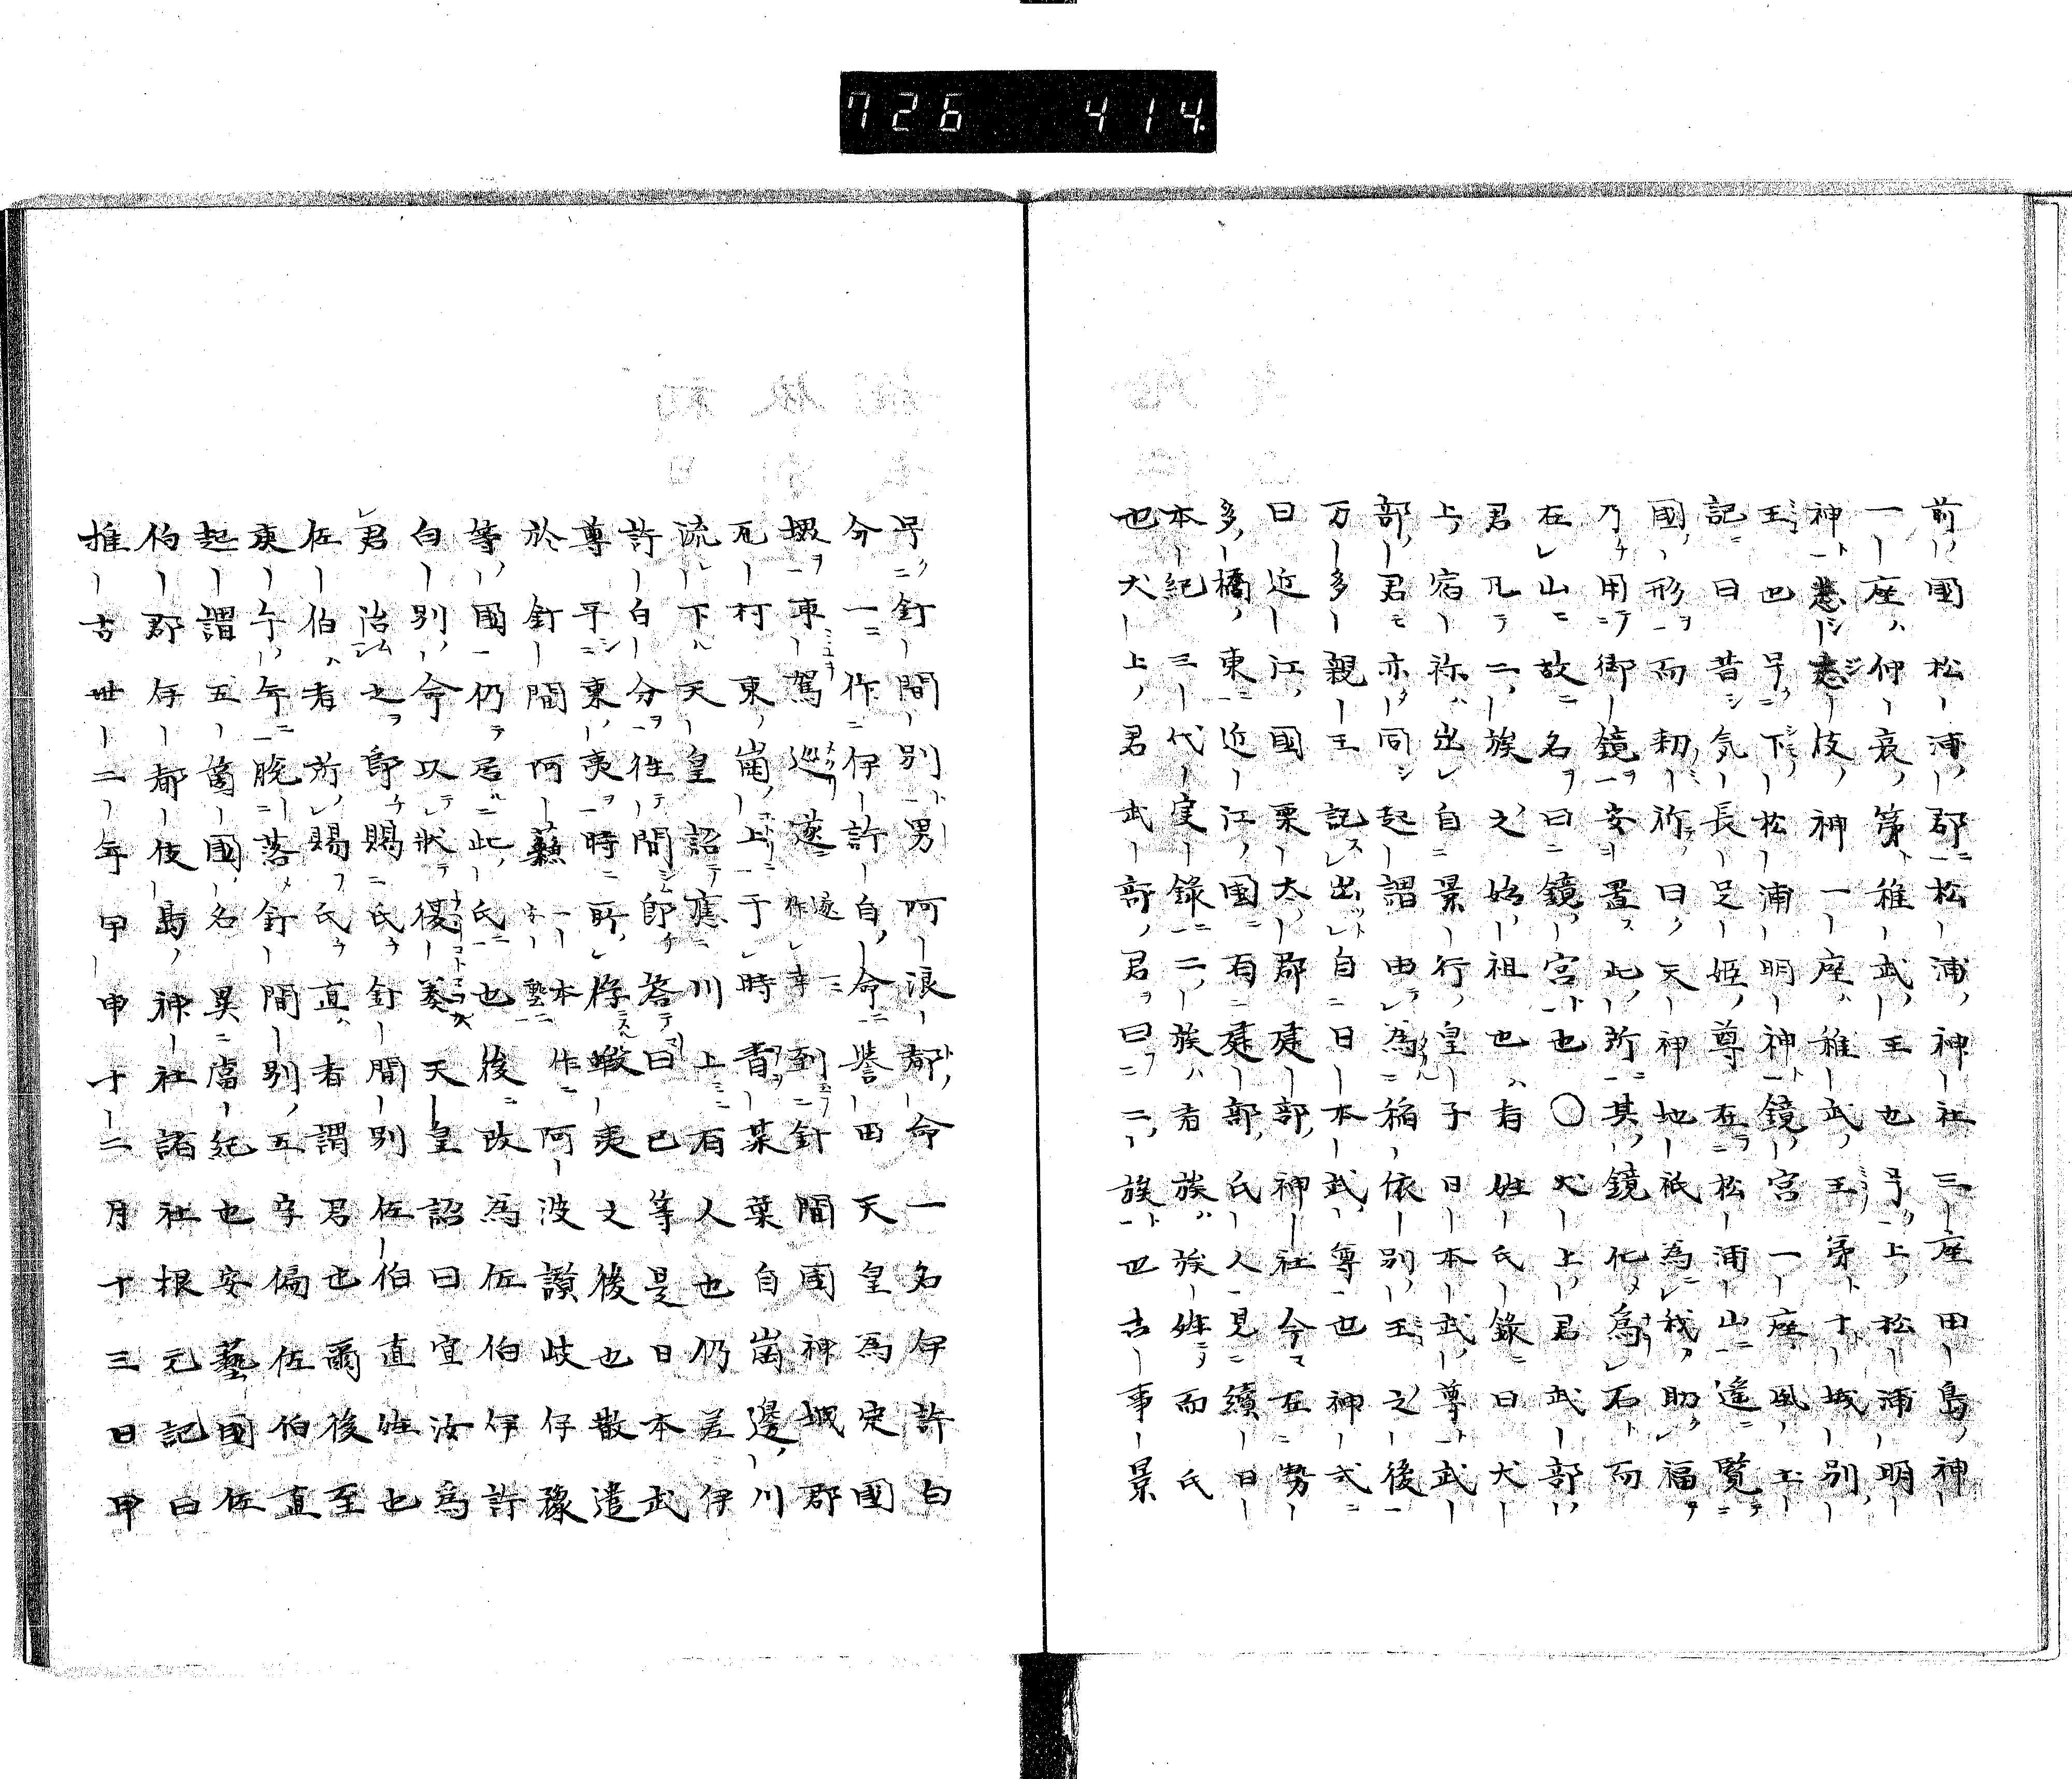 前國松浦郡松浦神社三座田島神
一座仲哀第稚武王也号上松浦明
神志志岐神一座稚武王弟十城別
王也号下松浦明神鏡宮一座風土
記曰昔気長足姫尊在松浦山遙覧
國形而勅祈曰天神地祇為我助福
乃用御鏡安置此所其鏡化為石而
在山故名曰鏡宮也〇犬上君武部
君凡二族之始祖也者姓氏録曰犬
上宿祢出自景行皇子日本武尊武
部君亦同起謂由為稲依別王之後
万多親王記出自日本武尊也神式
曰近江國栗太郡建部神社今在勢
多橋東近江国有建部氏人見續日
本紀三代実録二族者族族姓而氏
也犬上君武部君曰二族也古事景
号釘間別男阿浪都命一名伊許自
分一作伊許自命誉田天皇為定國
堺車駕巡遂遂作幸到針間國神城郡
瓦村東崗上于時青菜葉自崗邊川
流下天皇詔應川上有人也仍差伊
許自分往問即答曰已等是日本武
尊平東夷時所俘蝦夷之後也散遣
於釘間阿蘇一本本藝作阿波讃岐伊豫
等國仍居此氏也後改為佐伯伊許
自別命以状復奏天皇詔曰宜汝為
君治之即賜氏釘間別佐伯直姓也
佐伯者所賜氏直者謂君也爾後至
庚午午脱落釘間別五字偏佐伯直
起謂五箇國名異膚紀也安藝國佐
伯郡伊都伎島神社諸社根元記曰
推古世二年甲申十二月十三日甲
726 414